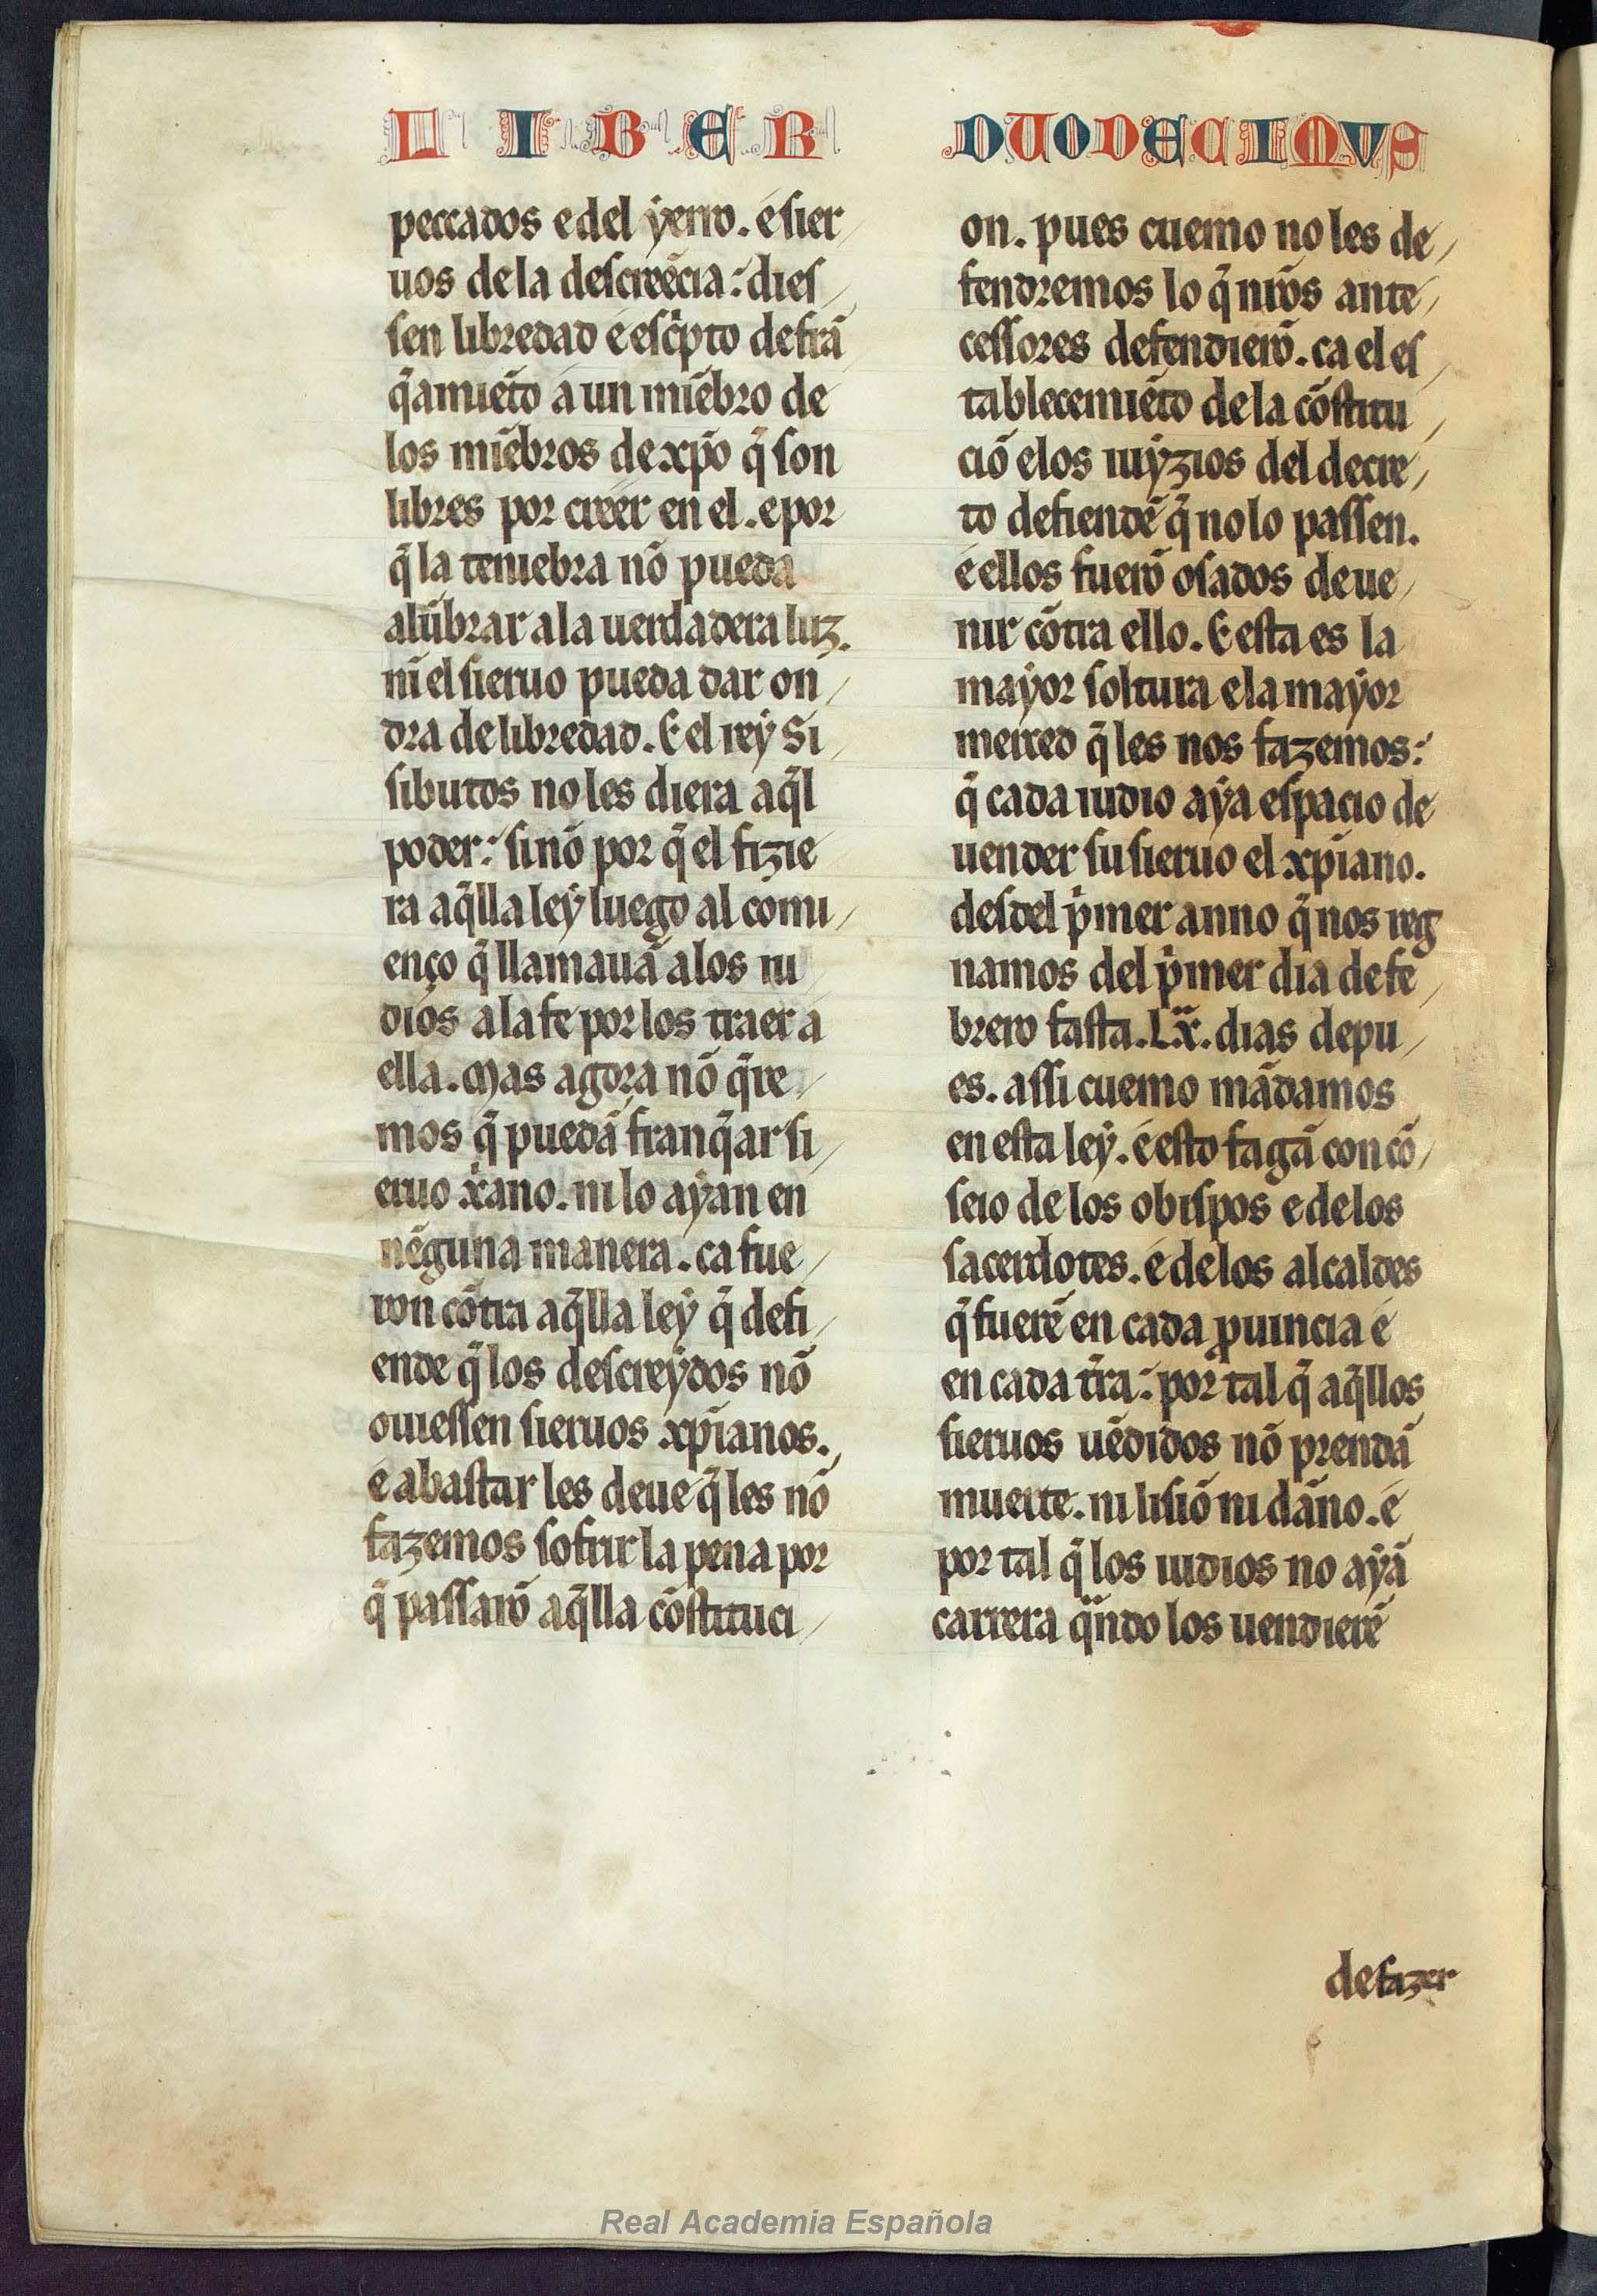 LIBER
DUODECIMVS
peccados e del ẏerro. é ſier
uos de la deſcreẽcia: dieſ
ſen libredad é eſcͥpto de frã
q̃amiẽto á un miẽbro de
los miẽbros de xp̃o q̃ ſon
libres por creer en el. e por
q̃ la teniebra nõ pueda
alũbrar a la uerdadera luz.
nĩ el ſieruo pueda dar on
dra de libredad. E el reẏ Si
ſibutos no les diera aq̃l
poder: ſinõ por q̃ el fizie
ra aq̃lla leẏ luego al comi
enço q̃ llamauã a los iu
dios a la fe por los traer á
ella. Mas agora nõ q̃re
mos q̃ puedã franq̃ar ſi
eruo xͥano. ni lo aẏan en
nẽguna manera. ca fue
ron cõtra aq̃lla leẏ q̃ defi
ende q̃ los deſcreẏdos nõ
ouieſſen ſieruos xp̃ianos.
é abaſtar les deue q̃ les nõ
fazemos ſofrir la pena por
q̃ paſſarõ aq̃lla cõſtituci
on. pues cuemo no les de
fendremos lo q̃ nr̃os ante
ceſſores defendierõ. ca el eſ
tablecemiẽto de la cõſtitu
ciõ e los iuẏzios del decre
to defiendẽ q̃ no lo paſſen.
é ellos fuerõ oſados de ue
nir cõtra ello. E eſta es la
maẏor ſoltura e la maẏor
merced q̃ les nos fazemos:
q̃ cada iudio aẏa eſpacio de
uender ſu ſieruo el xp̃iano.
deſdel pͥmer anno q̃ nos reg
namos del pͥmer dia de fe
brero faſta .Lx̃. dias depu
es. aſſi cuemo mãdamos
en eſta leẏ. é eſto fagã con cõ
ſeio de los obiſpos e de los
ſacerdotes. é de los alcaldes
q̃ fuerẽ en cada ꝓuincia é
en cada tr̃a: por tal q̃ aq̃llos
ſieruos uẽdidos nõ prendã
muerte. ni liſiõ ni dãno. é
por tal q̃ los iudios no aẏã
carrera qͣndo los uendierẽ
de fazer
Real Academia Española